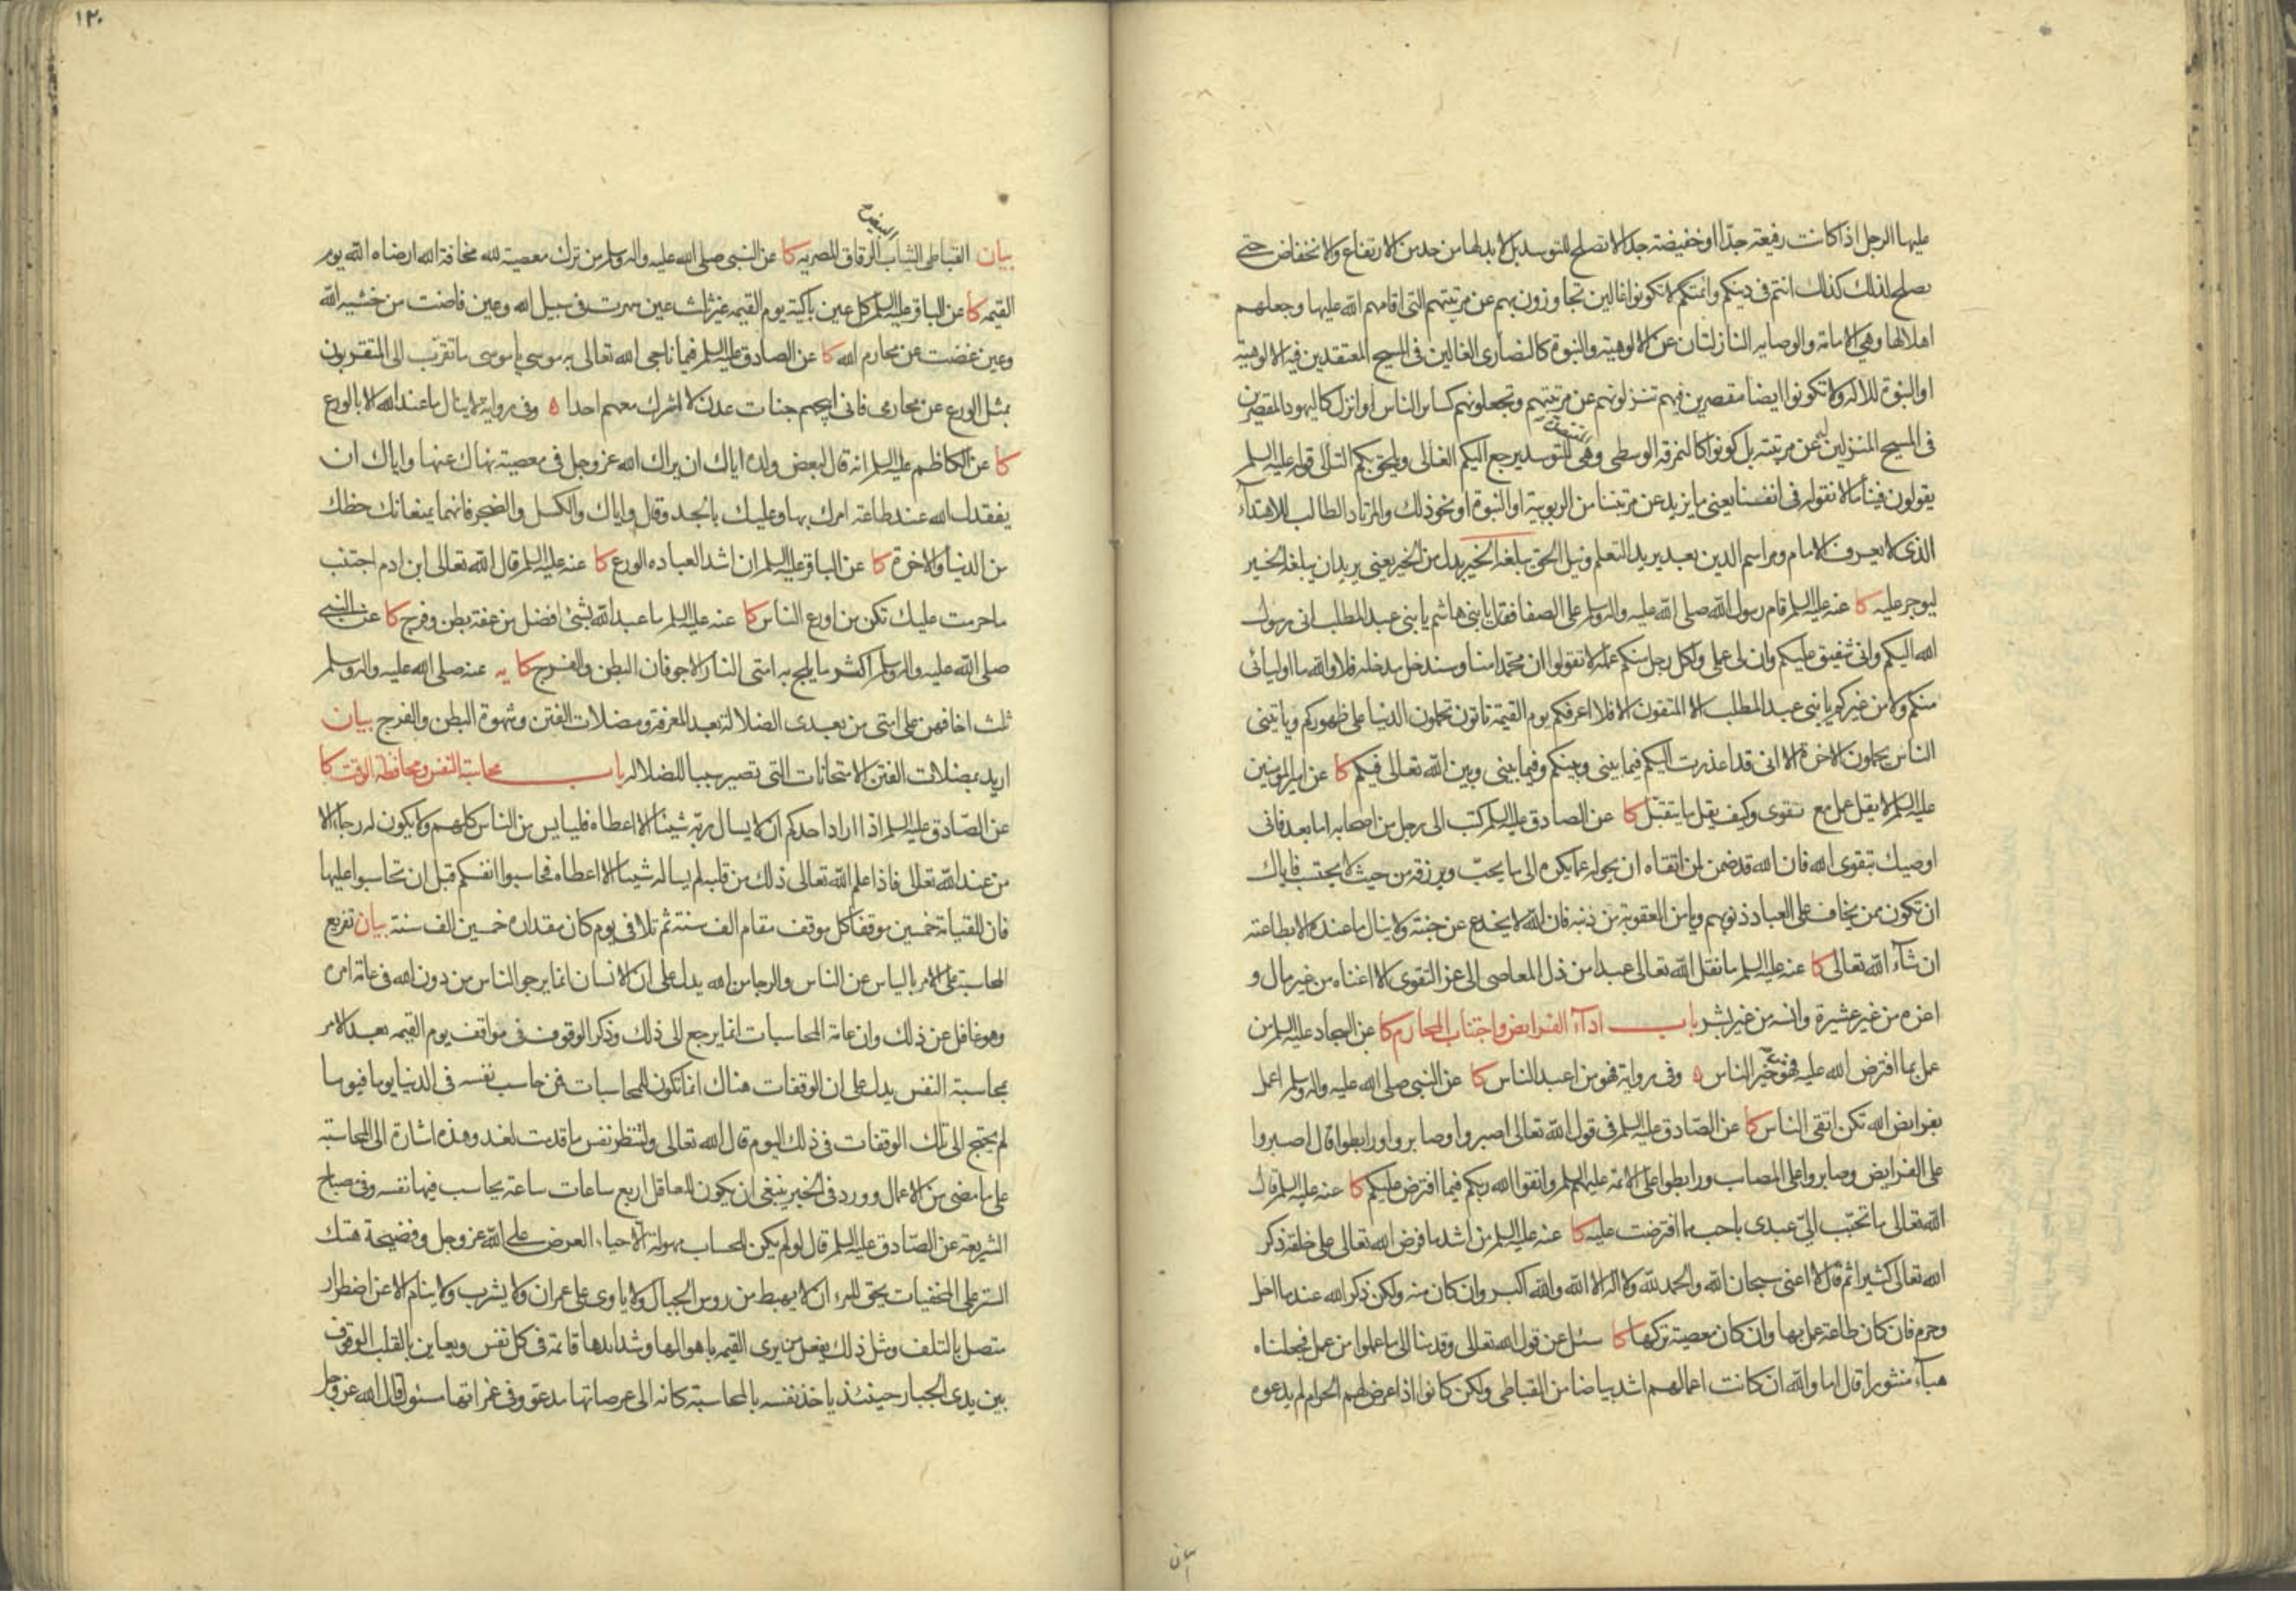 عليها الرجل اذا كانت رفيعة جدّا او خفيضة جدا لا تصلح للتوسد بل لابد لها من حد من الارتفاع والانخفاض حتى
يصلح لذلك كذلك انتم في دينكم وائمتكم لا تكونوا غالين تجاوزون بهم عن مرتبتهم التي اقامهم الله عليها وجعلهم
اهلا لها وهي الامامة والوصاية النازلتان عن الالوهية والنبوة كالنصارى الغالين في المسيح المعتقدين فيه الالوهية
او النبوة للاله ولا تكونوا ايضا مقصرين فيهم تنزلونهم عن مرتبتهم وتجعلونهم كسائر الناس او انزل كاليهود المقصرين
في المسيح المنزلين له عن مرتبته بل كونوا كالنمرقة الوسطى وهي المقتصدة للتوسد يرجع اليكم الغالي ويلحق بكم التالي قوله عليه السلم
يقولون فينا ما لا نقوله في انفسنا يعني ما يزيد عن مرتبتنا من الربوبية او النبوة او نحو ذلك والمرتاد الطالب للاهتداء
الذي لا يعرف الامام ومراسم الدين بعد يريد التعلم ونيل الحق يبلغه الخير بدل من الخير يعني يريد ان يبلغه الخير
ليوجر عليه كا عنه عليه السلم قام رسول الله صلى الله عليه واله وسلم على الصفا فقال يا بني هاشم يا بني عبد المطلب اني رسول
الله اليكم واني شفيق عليكم وان لي عملي ولكل رجل منكم عمله لا تقولوا ان محمدا منا وسندخل مدخله فلا والله ما اوليائي
منكم ولا من غيركم يا بني عبد المطلب الا المتقون الا فلا اعرفكم يوم القيمة تاتون تحملون الدنيا على ظهوركم وياتيني
الناس يحملون الاخرة الا اني قد اعذرت اليكم فيما بيني وبينكم وفيما بيني وبين الله تعالى فيكم كا عن امير المؤمنين
عليه السلم لا يقل عمل مع تقوى وكيف يقل ما يتقبل كا عن الصادق عليه السلم كتب الى رجل من اصحابه اما بعد فاني
اوصيك بتقوى الله فان الله قد ضمن لمن اتقاه ان يحوله عما يكره الى ما يحب ويرزقه من حيث لا يحتسب فاياك
ان تكون ممن يخاف على العباد ذنوبهم ويامن العقوبة من ذنبه فان الله لا يخدع عن جنته ولا ينال ما عنده الا بطاعته
ان شاء الله تعالى كا عنه عليه السلم ما نقل الله تعالى عبدا من ذل المعاصي الى عز التقوى الا اغناه من غير مال و
اعزه من غير عشيرة وانسه من غير بشر باب اداء الفرايض واجتناب المحارم كا عن السجاد عليه السلم من
عمل بما افترض الله عليه فهو من خير الناس ه وفي رواية فهو من اعبد الناس كا عن النبي صلى الله عليه واله وسلم اعمل
بفرايض الله تكن اتقى الناس كا عن الصادق عليه السلم في قول الله تعالى اصبروا وصابروا ورابطوا قال اصبروا
على الفرايض وصابروا على المصاب ورابطوا على الائمة عليهم السلم واتقوا الله ربكم فيما افترض عليكم كا عنه عليه السلم قال
الله تعالى ما تحبب الي عبدي باحب مما افترضت عليه كا عنه عليه السلم من اشد ما فرض الله تعالى على خلقه ذكر
الله تعالى كثيرا ثم قال لا اعني سبحان الله والحمد لله ولا اله الا الله والله اكبر وان كان منه ولكن ذكر الله عند ما احل
وحرم فان كان طاعة عمل بها وان كان معصية تركها كا سئل عن قول الله تعالى وقدمنا الى ما عملوا من عمل فجعلناه
هباء منثورا قال اما والله ان كانت اعمالهم اشد بياضا من القباطي ولكن كانوا اذا عرض لهم الحرام لم يدعوه
بيان
١٢٠
بيان القباطي الثياب البيض الرقاق المصرية كا عن النبي صلى الله عليه واله وسلم من ترك معصية لله مخافة الله ارضاه الله يوم
القيمة كا عن الباقر عليه السلم كل عين باكية يوم القيمة غير ثلث عين سهرت في سبيل الله وعين فاضت من خشية الله
وعين غضت عن محارم الله كا عن الصادق عليه السلم فيما ناجى الله تعالى به موسى يا موسى ما تقرب الي المتقربون
بمثل الورع عن محارمي فاني ابيحهم جنات عدن لا اشرك معهم احدا ه وفي رواية لا ينال ما عند الله الا بالورع
كا عن الكاظم عليه السلم انه قال لبعض ولده اياك ان يراك الله عز وجل في معصية نهاك عنها واياك ان
يفقدك الله عند طاعة امرك بها وعليك بالجد وقال واياك والكسل والضجر فانهما يمنعانك حظك
من الدنيا والاخرة كا عن الباقر عليه السلم ان اشد العبادة الورع كا عنه عليه السلم قال الله تعالى ابن ادم اجتنب
ما حرمت عليك تكن من اورع الناس كا عنه عليه السلم ما عبد الله بشئ افضل من عفة بطن وفرج كا عن النبي
صلى الله عليه واله وسلم اكثر ما يلج به امتي النار الاجوفان البطن والفرج كا يه عنه صلى الله عليه واله وسلم
ثلث اخافهن على امتي من بعدي الضلالة بعد المعرفة ومضلات الفتن وشهوة البطن والفرج بيان
اريد بمضلات الفتن الامتحانات التي تصير سببا للضلالة باب محاسبة النفس ومحافظة الوقت كا
عن الصادق عليه السلم اذا اراد احدكم ان لا يسال ربه شيئا الا اعطاه فليايس من الناس كلهم ولا يكون له رجاء الا
من عند الله تعالى فاذا علم الله تعالى ذلك من قلبه لم يساله شيئا الا اعطاه فحاسبوا انفسكم قبل ان تحاسبوا عليها
فان للقيامة خمسين موقفا كل موقف مقام الف سنة ثم تلا في يوم كان مقداره خمسين الف سنة بيان تفريع
المحاسبة على الامر بالياس عن الناس والرجا من الله يدل على ان الانسان انما يرجو الناس من دون الله في عامة امره
وهو غافل عن ذلك وان عامة المحاسبات انما يرجع الى ذلك وذكر الوقوف في مواقف يوم القيمة بعد الامر
بمحاسبة النفس يدل على ان الوقفات هناك انما تكون للمحاسبات فمن حاسب نفسه في الدنيا يوما فيوما
لم يحتج الى تلك الوقفات في ذلك اليوم قال الله تعالى ولتنظر نفس ما قدمت لغد وهذه اشارة الى المحاسبة
على ما مضى من الاعمال وورد في الخبر ينبغي ان يكون للعاقل اربع ساعات ساعة يحاسب فيها نفسه وفي مصباح
الشريعة عن الصادق عليه السلم قال لو لم يكن للحساب مهولة الا حياء العرض على الله عز وجل وفضيحة هتك
الستر على المخفيات يحق للمرء ان لا يهبط من روس الجبال ولا ياوي على عمران ولا يشرب ولا ينام الا عن اضطرار
متصل بالتلف ومثل ذلك يفعل من يرى القيمة باهوالها وشدايدها قائمة في كل نفس ويعاين بالقلب الوقوف
بين يدي الجبار حينئذ ياخذ نفسه بالمحاسبة كانه الى عرصاتها مدعو وفي غمراتها مسئول قال الله عز وجل